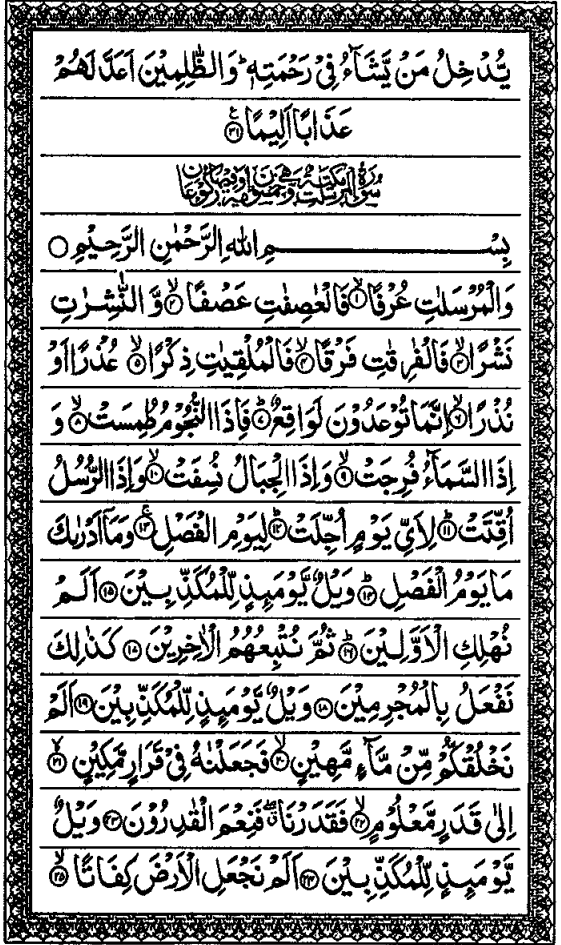 يُّدْخِلُ مَنْ يَّشَآءُ فِيْ رَحْمَتِهٖ ؕ وَالظّٰلِمِيْنَ اَعَدَّ لَهُمْ
عَذَابًا اَلِيْمًا ۧ۝۳۱
سُوْرَةُ الْمُرْسَلٰتِ مَكِّيَّةٌ وَّهِيَ خَمْسُوْنَ اٰيَةً وَّفِيْهَا رُكُوْعَانِ
بِسْمِ اللهِ الرَّحْمٰنِ الرَّحِيْمِ ۝
وَالْمُرْسَلٰتِ عُرْفًا ۙ۝۱ فَالْعٰصِفٰتِ عَصْفًا ۙ۝۲ وَّالنّٰشِرٰتِ
نَشْرًا ۙ۝۳ فَالْفٰرِقٰتِ فَرْقًا ۙ۝۴ فَالْمُلْقِيٰتِ ذِكْرًا ۙ۝۵ عُذْرًا اَوْ
نُذْرًا ۙ۝۶ اِنَّمَا تُوْعَدُوْنَ لَوَاقِعٌ ؕ۝۷ فَاِذَا النُّجُوْمُ طُمِسَتْ ۙ۝۸ وَ
اِذَا السَّمَآءُ فُرِجَتْ ۙ۝۹ وَاِذَا الْجِبَالُ نُسِفَتْ ۙ۝۱۰ وَاِذَا الرُّسُلُ
اُقِّتَتْ ؕ۝۱۱ لِاَيِّ يَوْمٍ اُجِّلَتْ ؕ۝۱۲ لِيَوْمِ الْفَصْلِ ۚ۝۱۳ وَمَآ اَدْرٰىكَ
مَا يَوْمُ الْفَصْلِ ؕ۝۱۴ وَيْلٌ يَّوْمَئِذٍ لِّلْمُكَذِّبِيْنَ ۝۱۵ اَلَمْ
نُهْلِكِ الْاَوَّلِيْنَ ؕ۝۱۶ ثُمَّ نُتْبِعُهُمُ الْاٰخِرِيْنَ ۝۱۷ كَذٰلِكَ
نَفْعَلُ بِالْمُجْرِمِيْنَ ۝۱۸ وَيْلٌ يَّوْمَئِذٍ لِّلْمُكَذِّبِيْنَ ۝۱۹ اَلَمْ
نَخْلُقْكُّمْ مِّنْ مَّآءٍ مَّهِيْنٍ ۙ۝۲۰ فَجَعَلْنٰهُ فِيْ قَرَارٍ مَّكِيْنٍ ۙ۝۲۱
اِلٰى قَدَرٍ مَّعْلُوْمٍ ۙ۝۲۲ فَقَدَرْنَا ۖ فَنِعْمَ الْقٰدِرُوْنَ ۝۲۳ وَيْلٌ
يَّوْمَئِذٍ لِّلْمُكَذِّبِيْنَ ۝۲۴ اَلَمْ نَجْعَلِ الْاَرْضَ كِفَاتًا ۙ۝۲۵